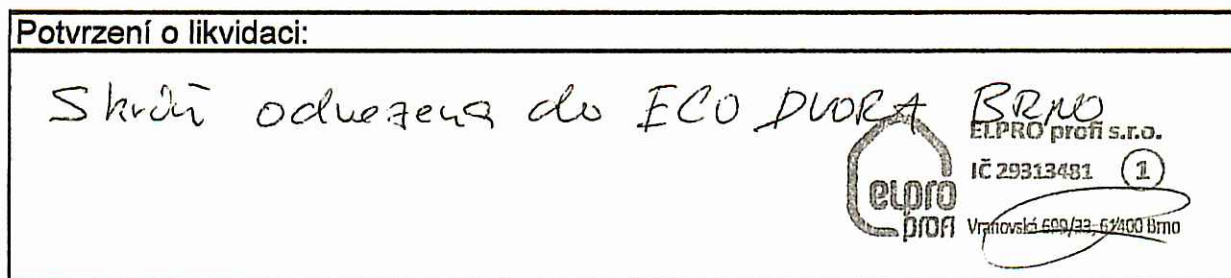 Potvrzení o likvidaci:
Skříň odvezena do ECO DVORA BRNO
ELPRO profi s.r.o.
IČ 29313481 1
elpro
profi
Vranovská 699/33, 61400 Brno